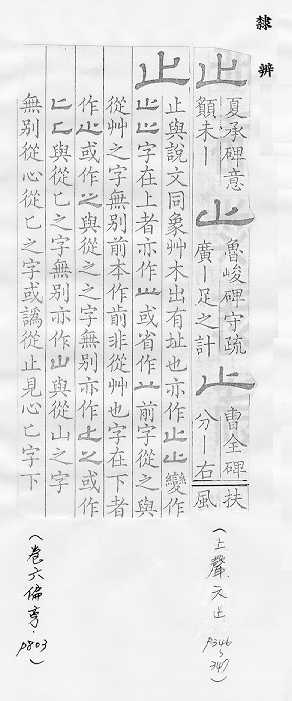 隸辨
止 夏承碑意
顡未丨
止 魯峻碑守疏
廣丨足之計
止 曹全碑扶
分丨右風
止
止與說文同象艸木出有址也亦作止止變作
字在上者亦作 或省作 前字從之與
從艸之字無别前本作歬非從艸也字在下者
作 或作 與從之之字無别亦作 或作
與從匕之字無别亦作山與從山之字
無别從心從匕之字或譌從止見心匕字下
(上聲六止 P346~347)
(卷六偏旁.P803)